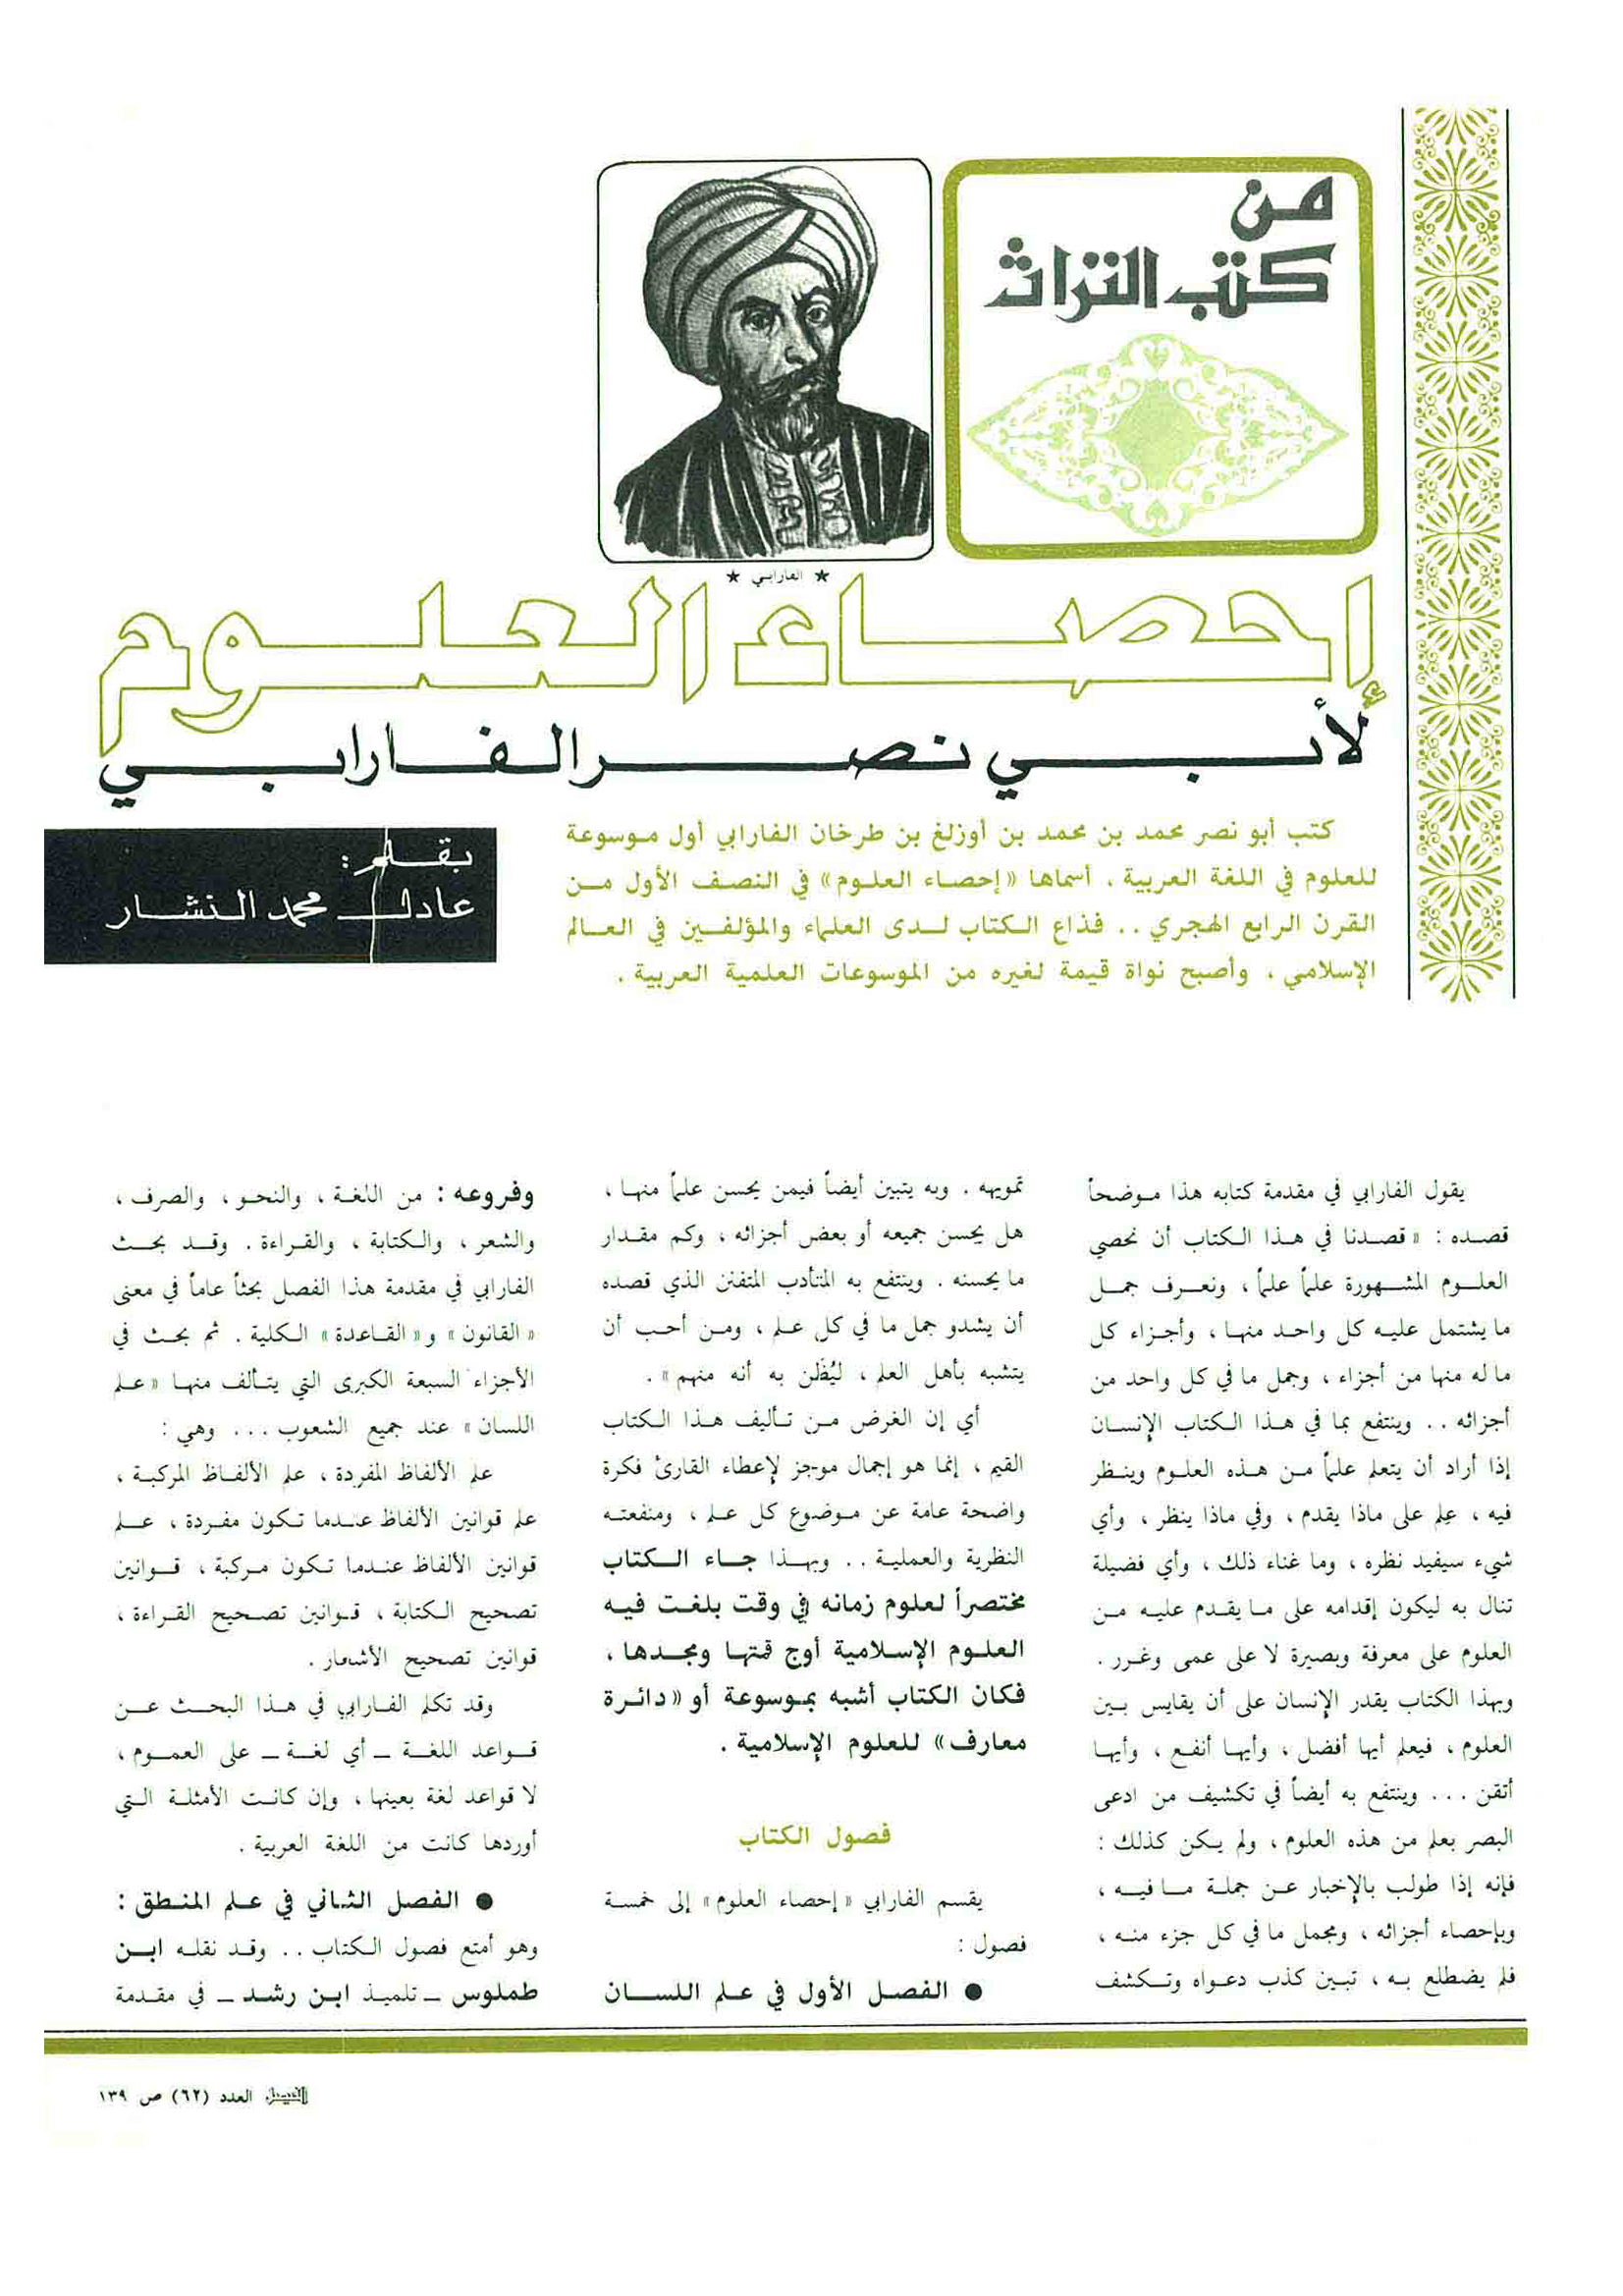 من
كتب التراث
★ الفارابي ★
إحصاء العلوم
لأبي نصر الفارابي
بقلم:
عادل محمد النشار
كتب أبو نصر محمد بن محمد بن أوزلغ بن طرخان الفارابي أول موسوعة
للعلوم في اللغة العربية ، أسماها «إحصاء العلوم» في النصف الأول من
القرن الرابع الهجري .. فذاع الكتاب لدى العلماء والمؤلفين في العالم
الإسلامي ، وأصبح نواة قيمة لغيره من الموسوعات العلمية العربية .
يقول الفارابي في مقدمة كتابه هذا موضحاً
قصده : « قصدنا في هذا الكتاب أن نحصي
العلوم المشهورة علماً علماً ، ونعرف جمل
ما يشتمل عليه كل واحد منها ، وأجزاء كل
ما له منها من أجزاء ، وجمل ما في كل واحد من
أجزائه .. وينتفع بما في هذا الكتاب الإنسان
إذا أراد أن يتعلم علماً من هذه العلوم وينظر
فيه ، علم على ماذا يقدم ، وفي ماذا ينظر ، وأي
شيء سيفيد نظره ، وما غناء ذلك ، وأي فضيلة
تنال به ليكون إقدامه على ما يقدم عليه من
العلوم على معرفة وبصيرة لا على عمى وغرر .
وبهذا الكتاب يقدر الإنسان على أن يقايس بين
العلوم ، فيعلم أيها أفضل ، وأيها أنفع ، وأيها
أتقن ... وينتفع به أيضاً في تكشيف من ادعى
البصر بعلم من هذه العلوم ، ولم يكن كذلك :
فإنه إذا طولب بالإخبار عن جملة ما فيه ،
وبإحصاء أجزائه ، ومجمل ما في كل جزء منه ،
فلم يضطلع به ، تبين كذب دعواه وتكشف
تمويهه . وبه يتبين أيضاً فيمن يحسن علماً منها ،
هل يحسن جميعه أو بعض أجزائه ، وكم مقدار
ما يحسنه . وينتفع به المتأدب المتفنن الذي قصده
أن يشدو جمل ما في كل علم ، ومن أحب أن
يتشبه بأهل العلم ، ليُظَن به أنه منهم » .
أي إن الغرض من تأليف هذا الكتاب
القيم ، إنما هو إجمال موجز لإعطاء القارئ فكرة
واضحة عامة عن موضوع كل علم ، ومنفعته
النظرية والعملية .. وبهذا جاء الكتاب
مختصراً لعلوم زمانه في وقت بلغت فيه
العلوم الإسلامية أوج قمتها ومجدها ،
فكان الكتاب أشبه بموسوعة أو «دائرة
معارف» للعلوم الإسلامية .
فصول الكتاب
يقسم الفارابي «إحصاء العلوم» إلى خمسة
فصول :
● الفصل الأول في علم اللسان
وفروعه : من اللغة ، والنحو ، والصرف ،
والشعر ، والكتابة ، والقراءة . وقد بحث
الفارابي في مقدمة هذا الفصل بحثاً عاماً في معنى
«القانون» و«القاعدة» الكلية . ثم بحث في
الأجزاء السبعة الكبرى التي يتألف منها «علم
اللسان» عند جميع الشعوب ... وهي :
علم الألفاظ المفردة ، علم الألفاظ المركبة ،
علم قوانين الألفاظ عندما تكون مفردة ، علم
قوانين الألفاظ عندما تكون مركبة ، قوانين
تصحيح الكتابة ، قوانين تصحيح القراءة ،
قوانين تصحيح الأشعار .
وقد تكلم الفارابي في هذا البحث عن
قواعد اللغة ــ أي لغة ــ على العموم ،
لا قواعد لغة بعينها ، وإن كانت الأمثلة التي
أوردها كانت من اللغة العربية .
● الفصل الثاني في علم المنطق :
وهو أمتع فصول الكتاب .. وقد نقله ابن
طملوس ــ تلميذ ابن رشد ــ في مقدمة
الفيصل العدد (٦٢) ص ١٣٩